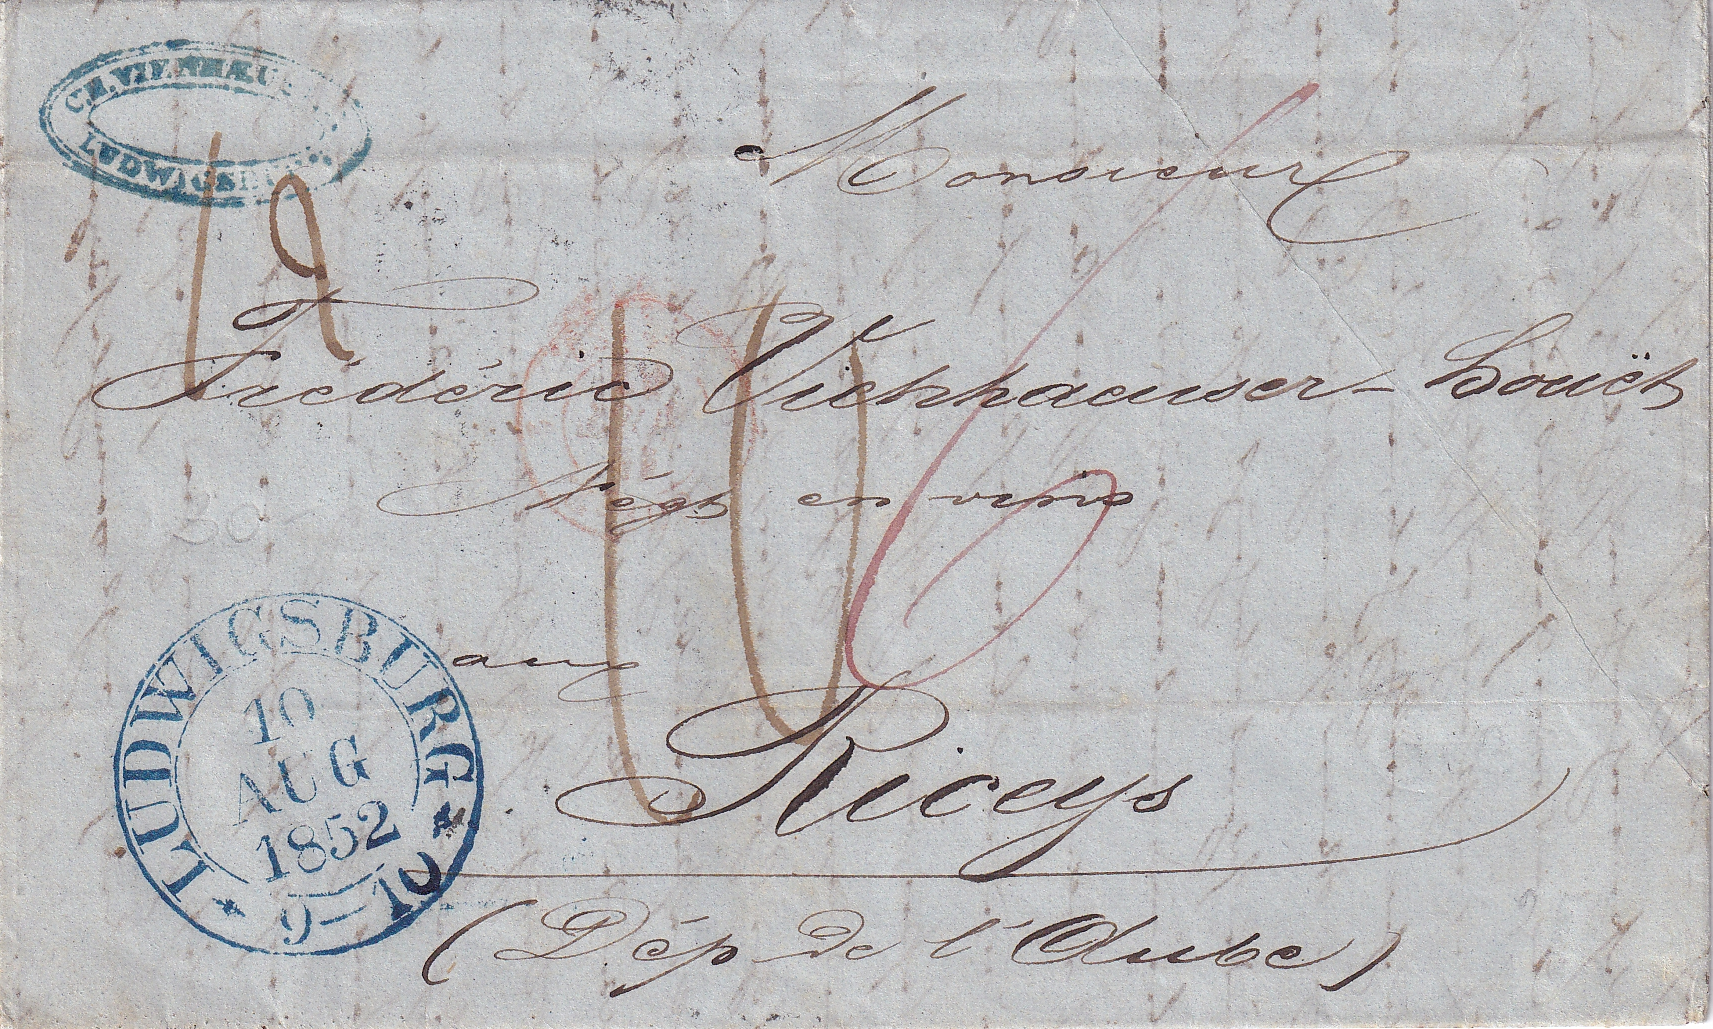 LUDWIGSBURG
12
Monsieur
Frédéric Viehhaeuser-Bouët
Négt en vins
10
6
aux
Riceys
(Dép de l'Aube)
LUDWIGSBURG
10
AUG
1852
9-10